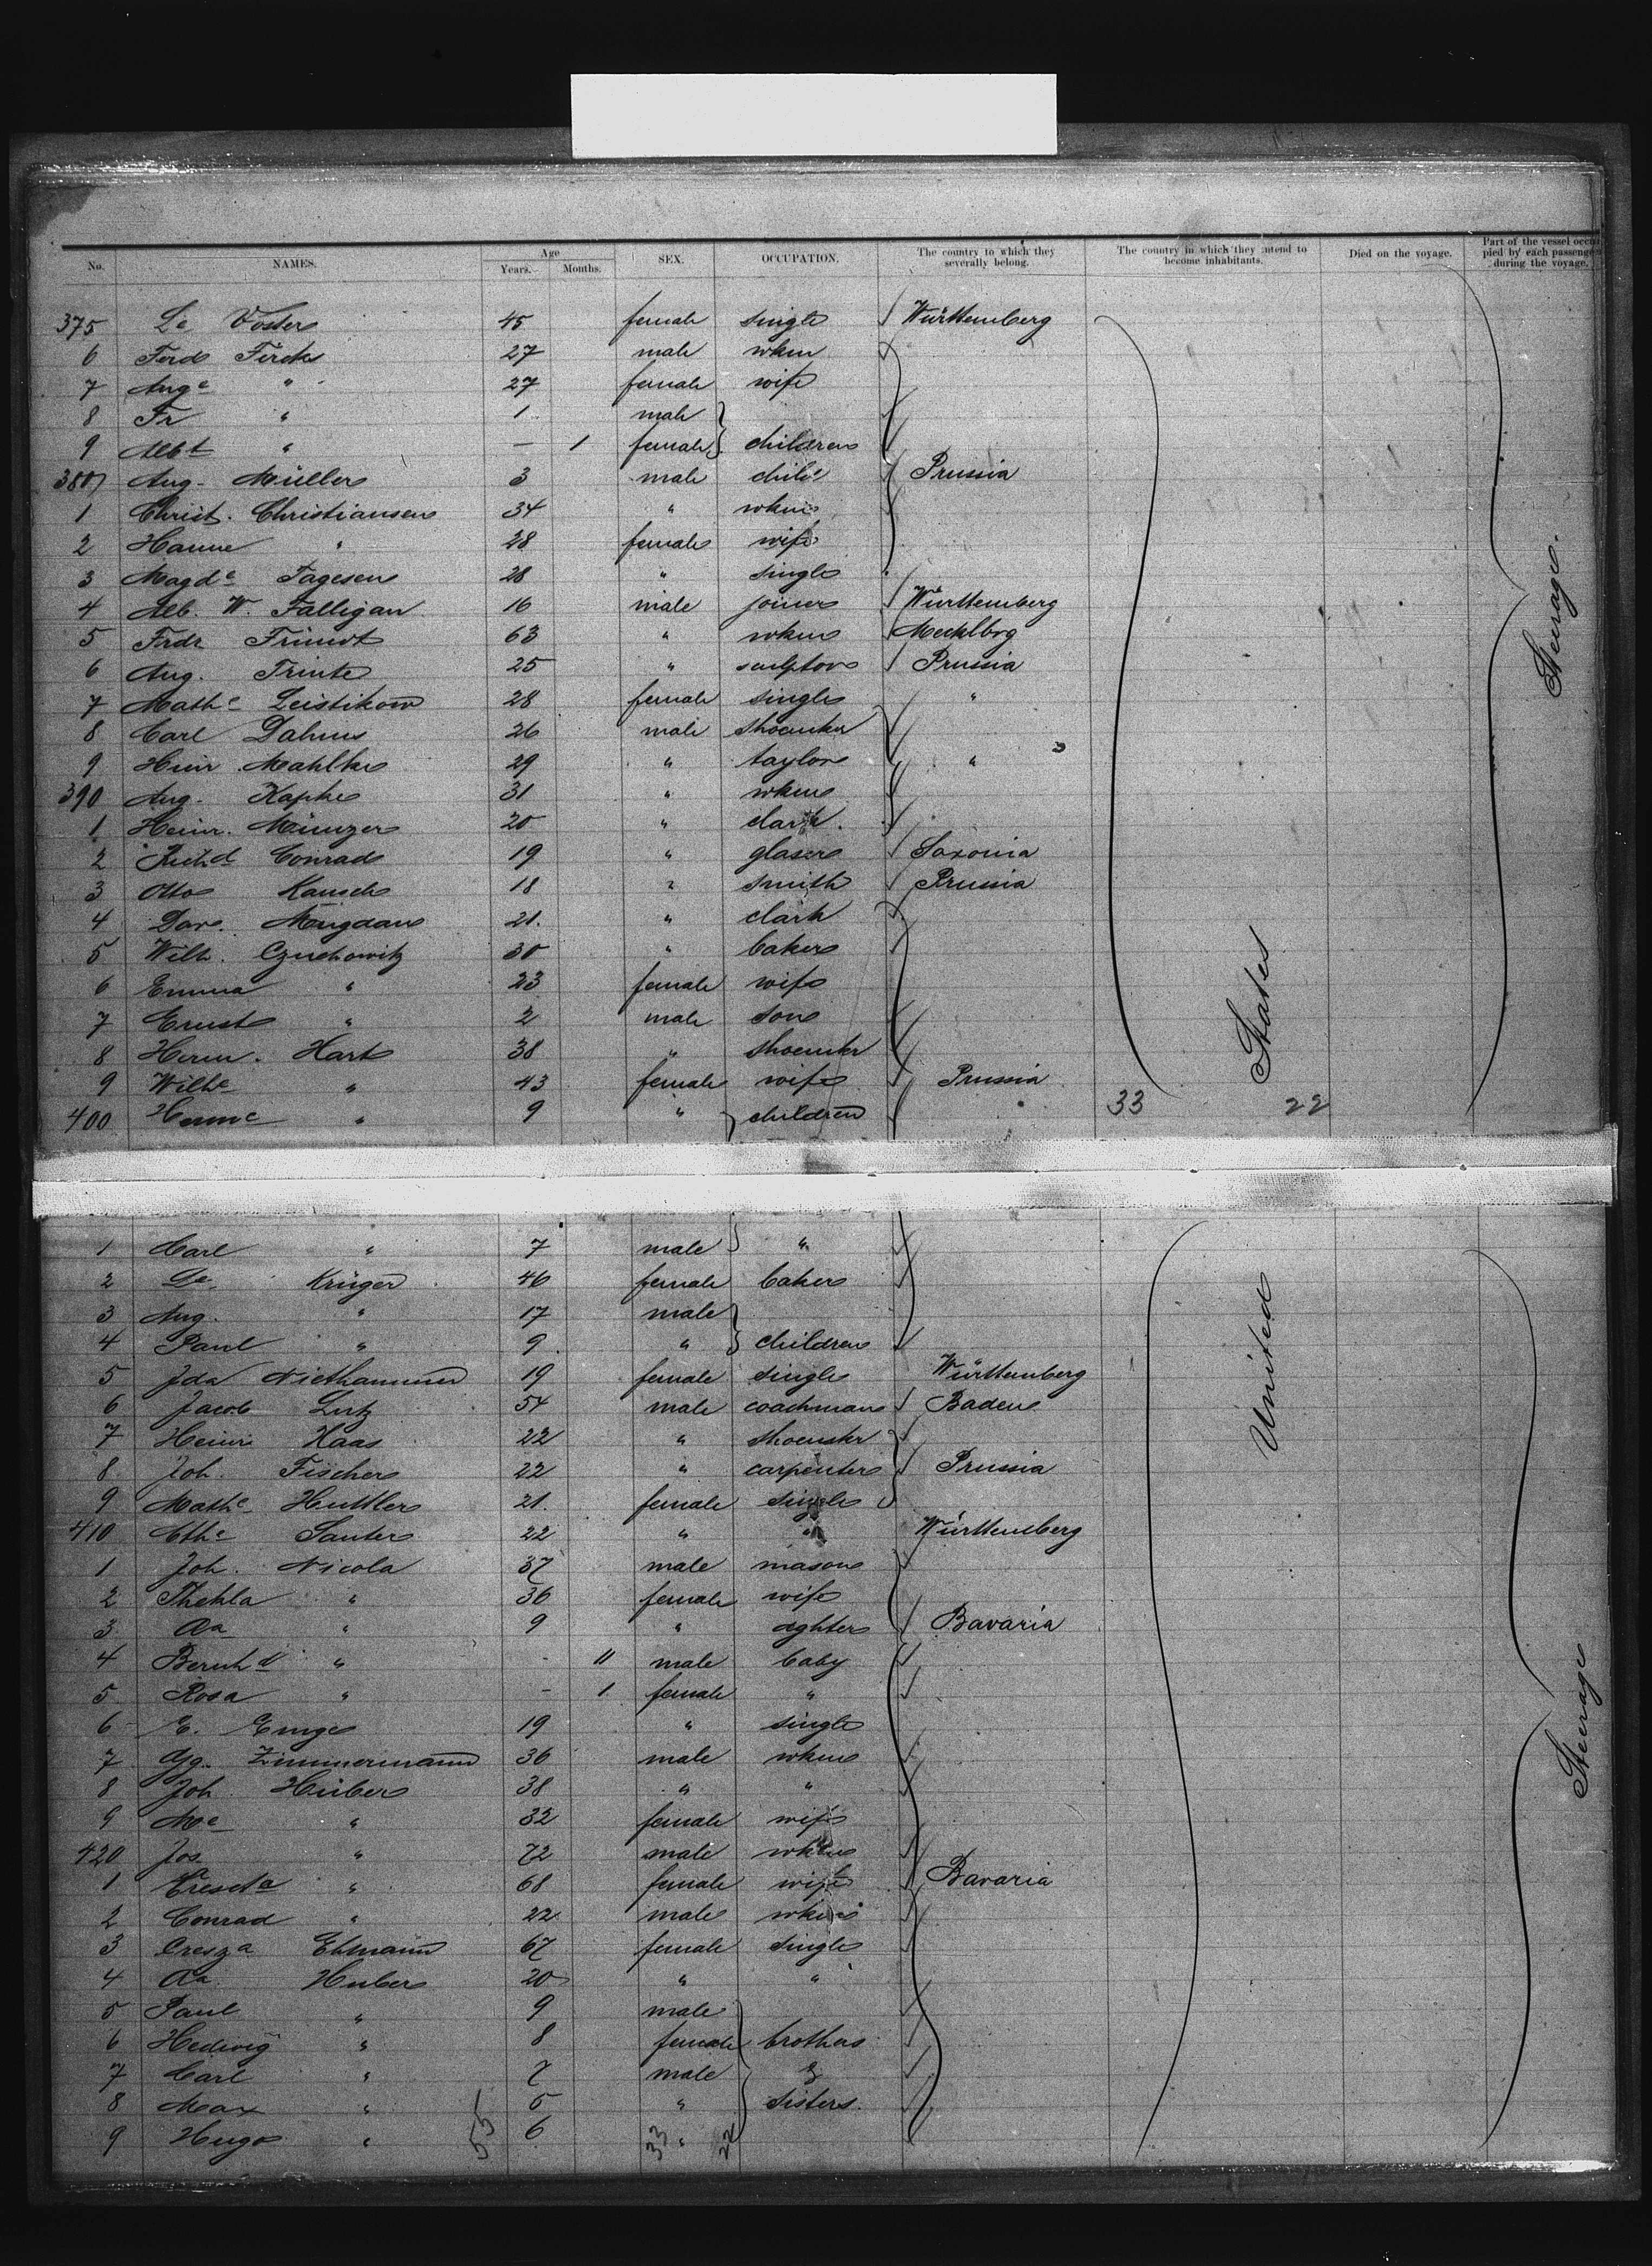 No. NAMES. Age Years. Months. SEX. OCCUPATION. The country to which they severally belong. The country in which they intend to become inhabitants. Died on the voyage. Part of the vessel occupied by each passenger during the voyage.
375 Le Voster 45 female single Württemberg
6 Ferd Firck 27 male wkm
7 Auge " 27 female wife
8 Fr " 1 male
9 Albt " — 1 female children
380 Aug. Müller 3 male child Prussia
1 Christ. Christiansen 34 " wkm
2 Hanne " 28 female wife
3 Magde Tagesen 28 " single
4 Alb. W. Falligan 16 male joiner Württemberg
5 Frdr 63 " wkm Mecklbrg
6 Aug. Trinte 25 " sculptor Prussia
7 Mathe Leistikow 28 female single "
8 Carl Dahms 26 male shoemkr
9 Heinr Mahlke 29 " taylor "
390 Aug. Kapke 31 " wkm
1 Heinr. Münzer 20 " clark
2 Richd Conrad 19 " glaser Saxonia
3 Otto Kausch 18 " smith Prussia
4 Dav. Mugdan 21. " clark
5 Wilh. Czuchowitz 30 " baker
6 Emma " 23 female wife
7 Ernst " 2 male son
8 Herm. Hart 38 " shoemkr
9 Wilhe " 43 female wife Prussia
400 Herme " 9 " children
33 States 22
Steerage.
1 Carl " 7 male "
2 De Krüger 46 female baker
3 Aug. " 17 male
4 Paul " 9 " children
5 Ida Niethammer 19 female single Württemberg
6 Jacob Lutz 54 male coachman Baden
7 Heinr Haas 22 " shoemkr
8 Joh. Fischer 22 " carpenter Prussia
9 Mathe Huttler 21. female single
410 Cthe Sauter 22 " " Württemberg
1 Joh. Nicola 37 male mason
2 Thekla " 36 female wife
3 Aa " 9 " dghter Bavaria
4 Bernhd " - 11 male baby
5 Rosa " - 1 female "
6 E. Emge 19 " single
7 Gg. Zimmermann 36 male wkm
8 Joh. Huber 38 " "
9 Me " 32 female wife
420 Jos " 72 male wkm
1 " 68 female wife Bavaria
2 Conrad " 22 male wkm
3 Cresza Ehmann 67 female single
4 Aa Huber 20 " "
5 Paul " 9 male
6 Hedwig " 8 female brothers
7 Carl " 7 male &
8 Max " 5 " sisters.
9 Hugo " 6 "
55 33 22
United
Steerage